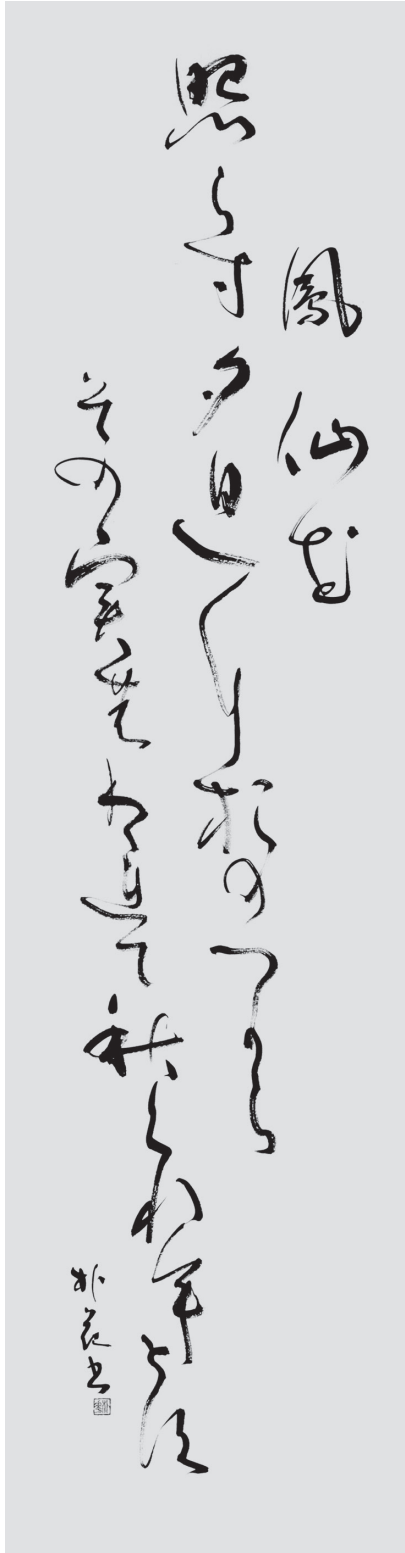 鳳仙花
照らす夕日におのつから
その実のわれて秋くれんとす
書